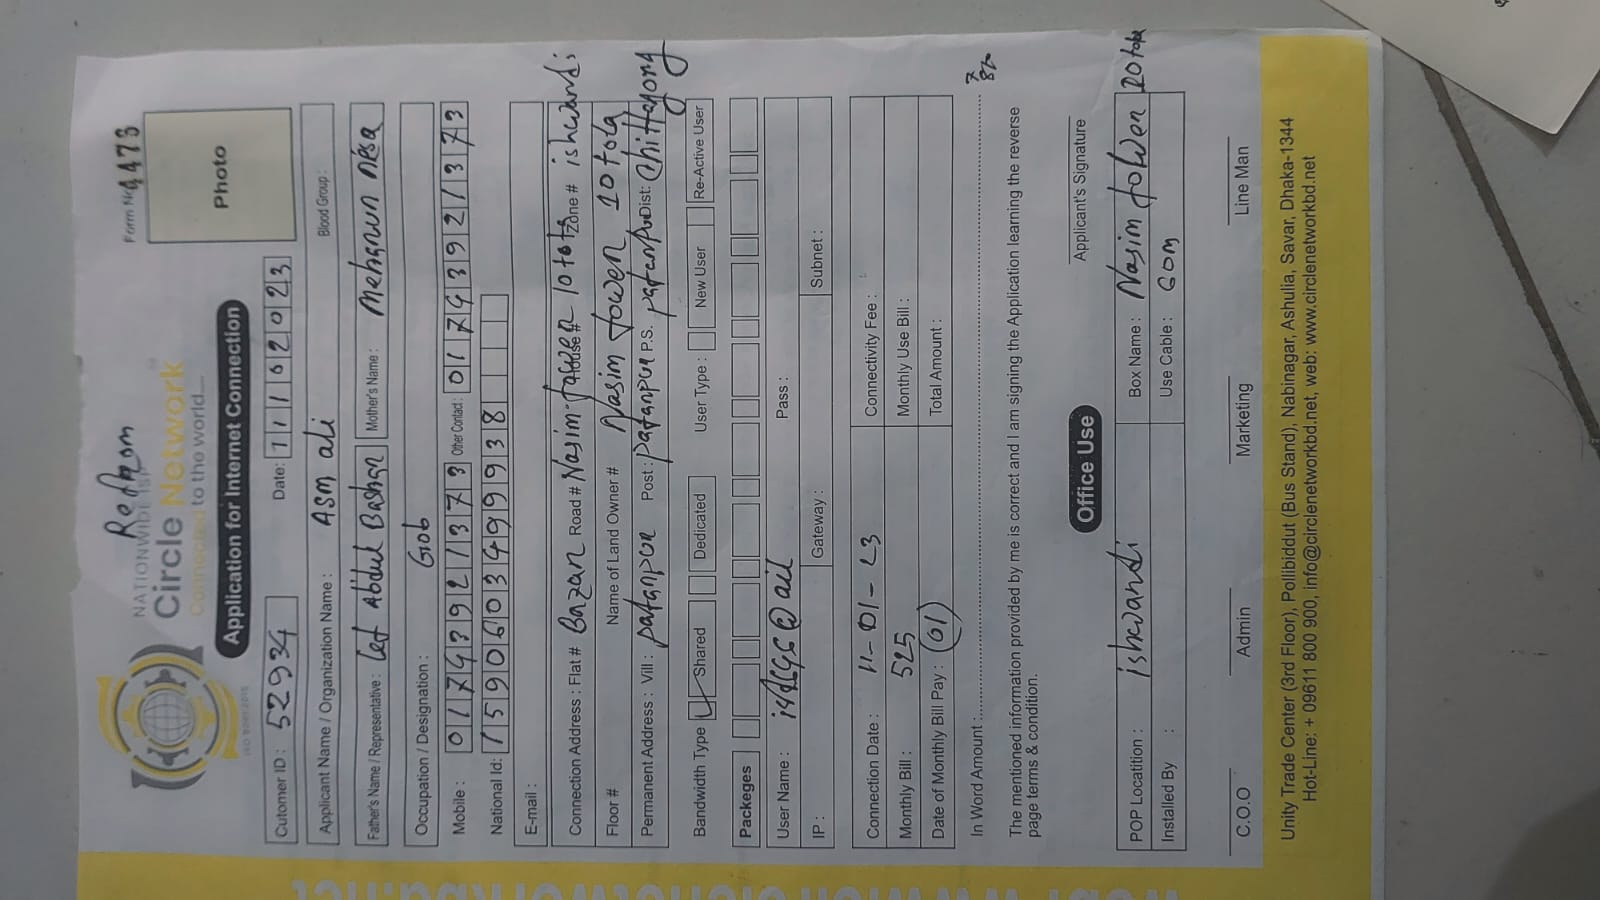 Redom
Form No 4473
NATIONWIDE ISP
Circle Network
Connected to the world....
ISO 9001:2015
Application for Internet Connection
Photo
Cutomer ID : 52934 Date: 11162023
Applicant Name / Organization Name : ASM ali Blood Group :
Father's Name / Representative : Let Abdul Bashar Mother's Name : Meharun nesa
Occupation / Designation : Gob
Mobile : 01743921373 Other Contad: 01743921373
National Id: 1590603499938
E-mail :
Connection Address : Flat # Bazar Road # Nasim tower House # 10 tota Zone # ishwardi
Floor # Name of Land Owner # Nasim tower 10 tota
Permanent Address : Vill : patanpur Post : patanpur P.S. patanpur Dist: Chittagong
Bandwidth Type Shared Dedicated User Type : New User Re-Active User
Packeges
User Name : Pass :
IP : Gateway : Subnet :
Connection Date : 11-01-23 Connectivity Fee :
Monthly Bill : 525 Monthly Use Bill :
Date of Monthly Bill Pay : 01 Total Amount :
In Word Amount :
The mentioned information provided by me is correct and I am signing the Application learning the reverse
page terms & condition.
Applicant's Signature
Office Use
POP Locatition : ishwardi Box Name : Nasim tower 20 tota
Installed By : Use Cable : 60m
C.O.O Admin Marketing Line Man
Unity Trade Center (3rd Floor), Pollibiddut (Bus Stand), Nabinagar, Ashulia, Savar, Dhaka-1344
Hot-Line: + 09611 800 900, info@circlenetworkbd.net, web: www.circlenetworkbd.net